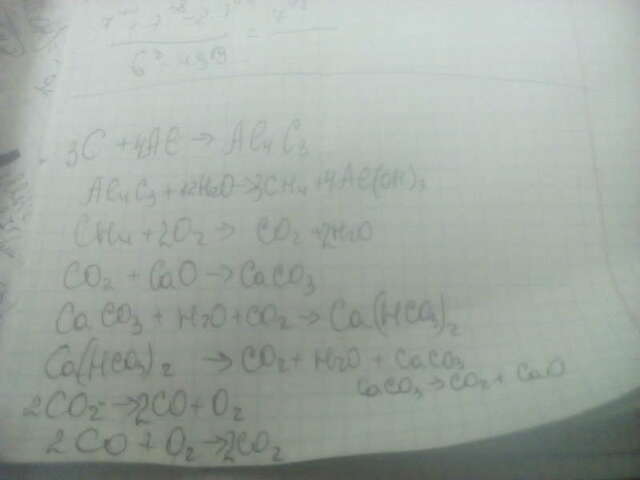 3C + 4Al → Al₄C₃
Al₄C₃ + 12H₂O → 3CH₄ + 4Al(OH)₃
CH₄ + 2O₂ → CO₂ + 2H₂O
CO₂ + CaO → CaCO₃
CaCO₃ + H₂O + CO₂ → Ca(HCO₃)₂
Ca(HCO₃)₂ → CO₂ + H₂O + CaCO₃
CaCO₃ → CO₂ + CaO
2CO₂ → 2CO + O₂
2CO + O₂ → 2CO₂